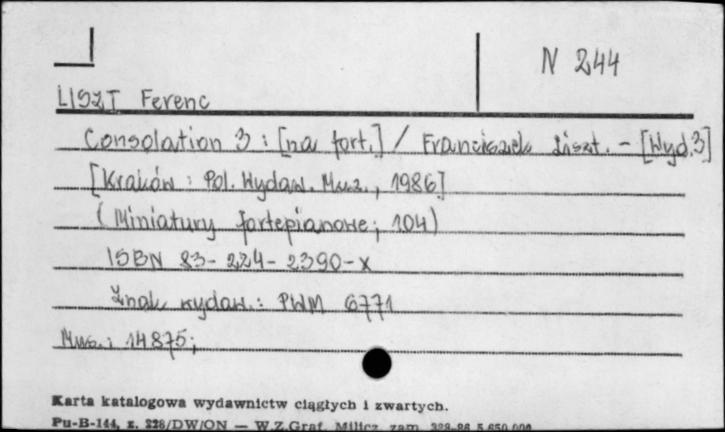 N 244
LISZT Ferenc
Consolation 3 : [na fort.] / Franciszek Liszt. - [Wyd. 3]
[Kraków : Pol. Wydaw. Muz., 1986]
(Miniatury fortepianowe ; 104)
ISBN 83-224-2390-X
Znak wydaw.: PWM 6771
Mus.: 14875;
Karta katalogowa wydawnictw ciągłych i zwartych.
Pu-B-144, z. 228/DW/ON — W.Z.Graf. Milicz, zam. 328-86 5.650.000